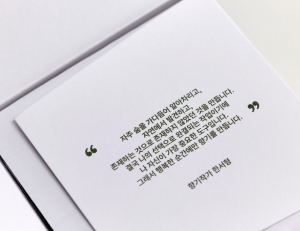 자주 숲을 가다듬어 알아차리고,
자연에서 발견하고,
존재하는 것으로 존재하지 않았던 것을 만듭니다.
결국 나의 선택으로 완결되는 작업이기에
나 자신이 가장 중요한 도구입니다.
그래서 행복한 순간에만 향기를 만듭니다.
향기작가 한서형